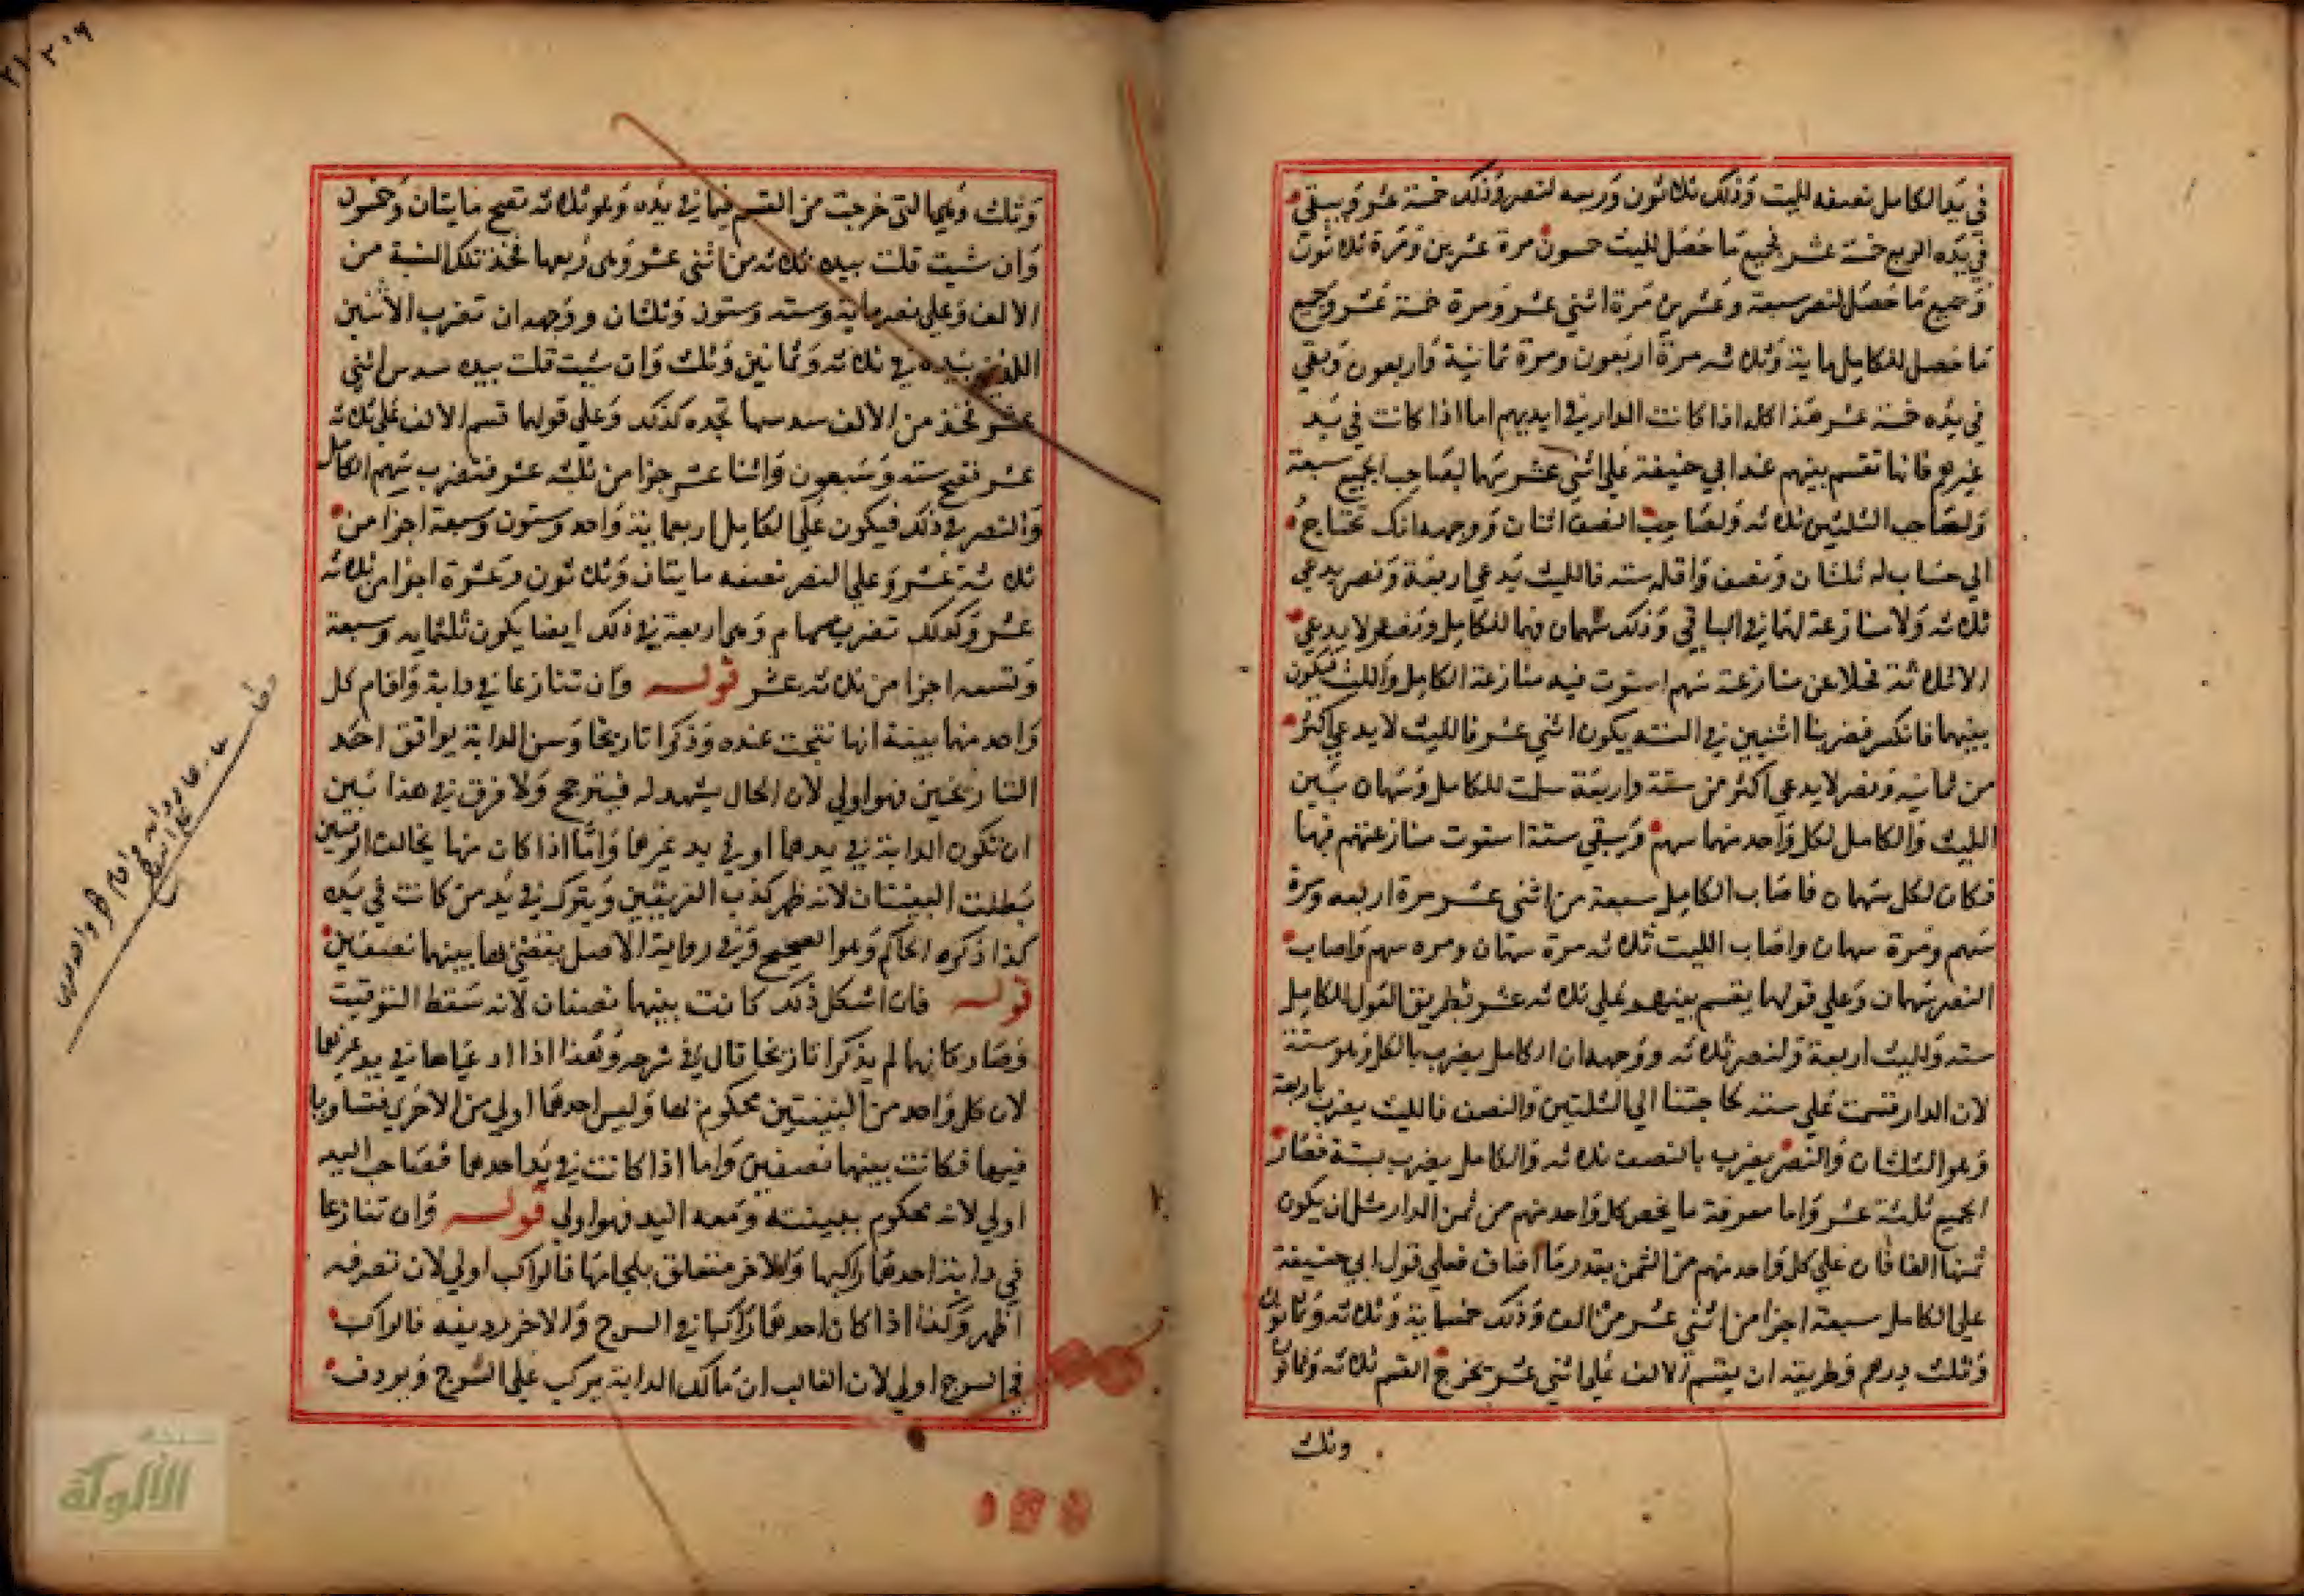 في يد الكامل نصفه لليث وذلك ثلاثون وربعه لنصر وذلك خمسة عشر ويبقي
في يده الربع خمسة عشر فجميع ما حصل لليث خمسون مرة عشرين ومرة ثلاثون
وجميع ما حصل لنصر سبعة وعشرين مرة اثني عشر ومرة خمسة عشر وجميع
ما حصل للكامل ماية وثلاثه مرة اربعون ومرة ثمانية واربعون وبقي
في يده خمسة عشر هذا كله اذا كانت الدار في ايديهم اما اذا كانت في يد
غيرهم فانها تقسم بينهم عند ابي حنيفة علي اثني عشر سهما لصاحب الجميع سبعة
ولصاحب الثلثين ثلاثه ولصاحب النصف اثنان ووجهه انك تحتاج
الي حساب له ثلثان ونصف واقله سته فالليث يدعي اربعة ونصر يدعي
ثلاثه ولا منازعة لهما في الباقي وذلك سهمان فهما للكامل ونصر لا يدعي
الا ثلاثة تخلا عن منازعة سهم استوت فيه منازعة الكامل والليث فيكون
بينهما فانكسر فضربنا اثنين في السته يكون اثني عشر فالليث لا يدعي اكثر
من ثمانيه ونصر لا يدعي اكثر من ستة واربعة سلمت للكامل وسهمان بين
الليث والكامل لكل واحد منهما سهم ويبقي ستة استوت منازعتهم فيها
فكان لكل سهمان فاصاب الكامل سبعة من اثني عشر مرة اربعه ومرة
سهم ومرة سهمان واصاب الليث ثلاثه مرة سهمان ومره سهم واصاب
النصر سهمان وعلي قولهما يقسم بينهم علي ثلاثه عشر بطريق العول للكامل
سته ولليث اربعة ولنصر ثلاثه ووجهه ان الكامل يضرب بالكل وهو ستة
لان الدار قسمت علي سته لحاجتنا الي الثلثين والنصف فالليث يضرب باربعة
وهو الثلثان والنصر يضرب بالنصف ثلاثه والكامل يضرب بستة فصار
الجميع ثلثة عشر واما معرفة ما يخص كل واحد منهم من ثمن الدار مثل ان يكون
ثمنها الفا فان علي كل واحد منهم من الثمن بقدر ما اصاب فعلي قول ابي حنيفة
علي الكامل سبعة اجزا من اثني عشر من الف وذلك خمسماية وثلاثه وثمانون
وثلث درهم وطريقه ان يقسم الالف علي اثني عشر يخرج القسم ثلاثه وثمانون
وثلث
وثلث وهيا التي خرجت من القسم فيما في يده وهو ثلاثه تصح مايتان وخمسون
وان شيت قلت بيده ثلاثه من اثني عشر وهي ربعها فخذ تلك النسبة من
الالف وعلي نصر ماية وسته وستون وثلثان ووجهه ان تضرب الاثنين
اللذين بيده في ثلاثه وثمانين وثلث وان شيت قلت بيده سدس اثني
عشر فخذ من الالف سدسها تجده كذلك وعلي قولهما قسم الالف علي ثلاثه
عشر فتصح سته وسبعون واثنا عشر جزا من ثلثه عشر فتضرب سهم الكامل
والنصر في ذلك فيكون علي الكامل اربعماية واحد وستون وسبعة اجزا من
ثلاثة عشر وعلي النصر نصفه مايتان وثلاثون وعشرة اجزا من ثلاثه
عشر وكذلك تضرب سهام وهي اربعة في ذلك ايضا يكون ثلثمايه وسبعة
وتسعه اجزا من ثلاثه عشر قوله وان تنازعا في دابة واقام كل
واحد منهما بينة انها نتجت عنده وذكرا تاريخا وسن الدابة يوافق احد
التاريخين فهو اولي لان الحال يشهد له فيترجح ولا فرق في هذا بين
ان تكون الدابة في يدهما او في يد غيرهما واما اذا كان سنها يخالف الوقتين
بطلت البينتان لانه ظهر كذب الفريقين ويترك في يد من كانت في يده
كذا ذكره الحاكم وهو الصحيح وفي رواية الاصل يقضي بها بينهما نصفين
قوله فان اشكل ذلك كانت بينهما نصفان لانه سقط التوقيت
وصار كانهما لم يذكرا تاريخا قال في شرحه وهذا اذا ادعياها في يد غيرهما
لان كل واحد من البينتين محكوم بها وليس احدهما اولي من الاخري فتساويا
فيها فكانت بينهما نصفين واما اذا كانت في يد احدهما فصاحب اليد
اولي لانه محكوم ببينته ومعه اليد فهو اولي قوله وان تنازعا
في دابة احدهما راكبها والاخر متعلق بلجامها فالراكب اولي لان تصرفه
اظهر وكذا اذا كان احدهما راكبا في السرج والاخر رديفه فالراكب
في السرج اولي لان الغالب ان مالك الدابة يركب علي السرج ويردف
الألوكة